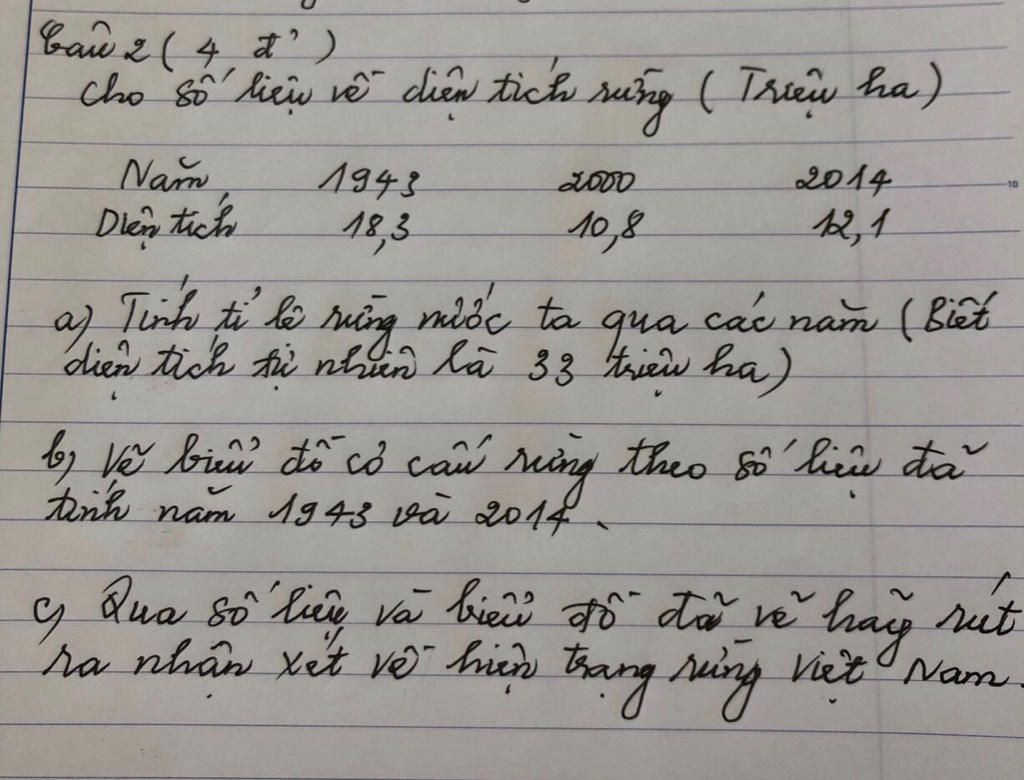 Câu 2 ( 4 đ' )
Cho số liệu về diện tích rừng ( Triệu ha )
Năm 1943 2000 2014
Diện tích 18,3 10,8 12,1
a) Tính tỉ lệ rừng nước ta qua các năm ( Biết
diện tích tự nhiên là 33 triệu ha )
b) Vẽ biểu đồ cơ cấu rừng theo số liệu đã
tính năm 1943 và 2014.
c) Qua số liệu và biểu đồ đã vẽ hãy rút
ra nhận xét về hiện trạng rừng Việt Nam.
10